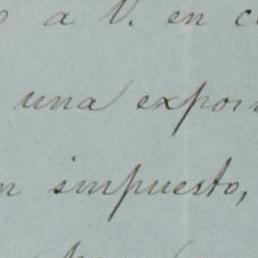 a V. en
una expos
impuesto,